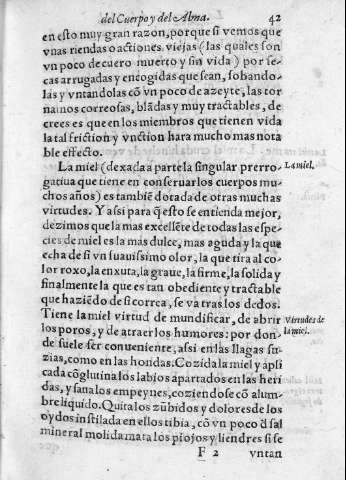 del Cuerpo y del Alma. 42
en esto muy gran razon, porque si vemos que
vnas riendas o actiones viejas (las quales son
vn poco de cuero muerto y sin vida) por se-
cas arrugadas y encogidas que sean, sobando-
las y vntandolas cõ vn poco de azeyte, las tor
namos correosas, blãdas y muy tractables, de
crees es que en los miembros que tienen vida
la tal friction y vnction hara mucho mas nota
ble effecto.
La miel (dexada a parte la singular prerro- La miel.
gatiua que tiene en conseruar los cuerpos mu-
chos años) es tambiẽ dotada de otras muchas
virtudes. Y assi para q̃ esto se entienda mejor,
dezimos que la mas excellẽte de todas las espe-
cies de miel es la más dulce, mas aguda y la que
echa de si vn suauissimo olor, la que tira al co-
lor roxo, la enxuta, la graue, la firme, la solida y
finalmente la que es tan obediente y tractable
que haziẽdo de si correa, se va tras los dedos.
Tiene la miel virtud de mundificar, de abrir Virtudes de
los poros, y de atraer los humores: por don- la miel.
de suele ser conueniente, assi en las llagas su-
zias, como en las hondas. Cozida la miel y apli
cada cõglutina los labios apartados en las heri
das, y sana los empeynes, coziendose cõ alum-
bre liquido. Quita los zũbidos y dolores de los
oydos instilada en ellos tibia, cõ vn poco d̃ sal
mineral molida mata los piojos y liendres si se
F 2 vntan